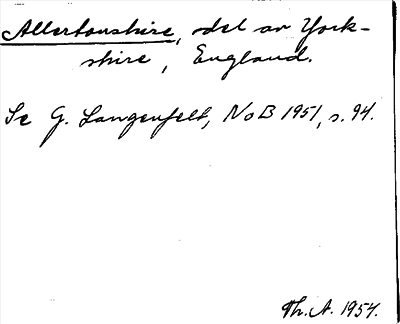 Allertonshire, del av York-
shire, England.
Se G. Langenfelt, NoB 1951, s. 94.
Th. A. 1954.